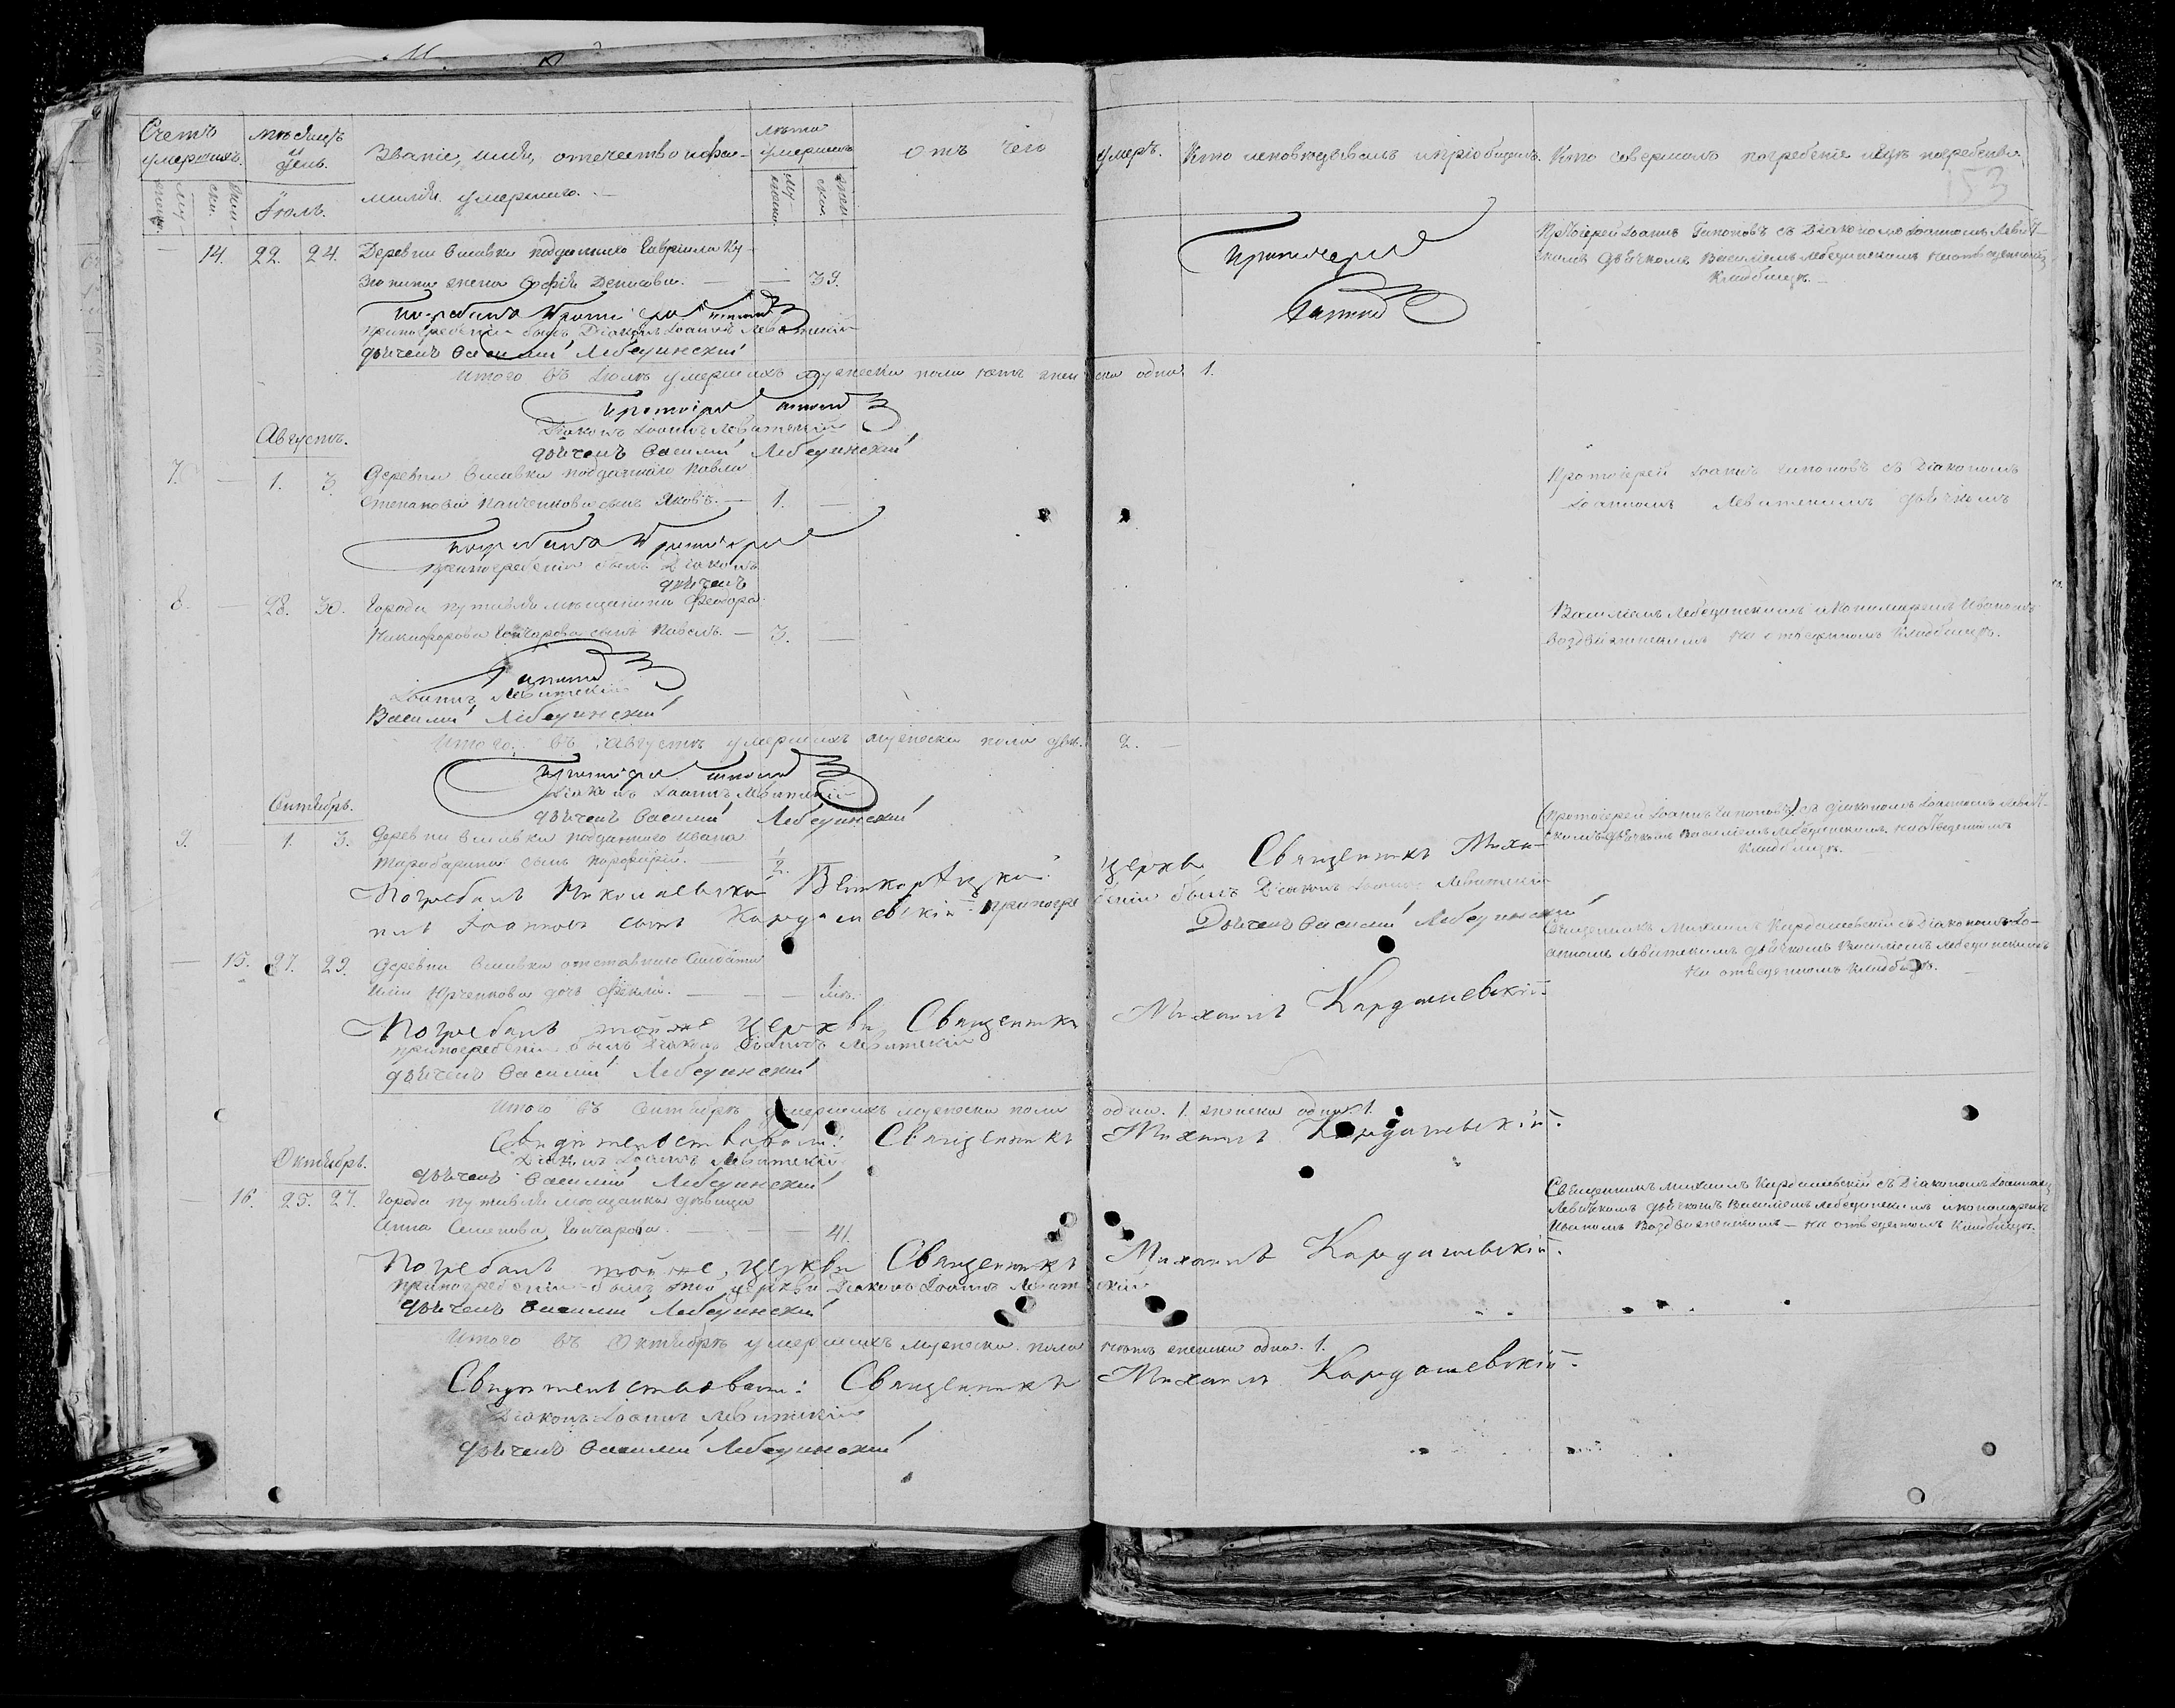 Счетъ умершихъ.
мѣсяцъ и день.
Званіе, имя, отечество и фа-
милія умершаго.
лѣта умершихъ
отъ чего умеръ.
Кто исповѣдывалъ и пріобщалъ.
Кто совершалъ погребеніе и гдѣ погребены.
153
Іюль.
14. 22. 24. Деревни подданнаго Гавріила Ку-
жена Софія Денисова. 39.
Протоіерей
Протоіерей Іоаннъ съ Діакономъ Іоанномъ Левит-
скимъ дьячкомъ Василіемъ Лебединскимъ на отведенномъ
Кладбищѣ.
Погребалъ
при погребеніи былъ Діаконъ Іоаннъ Левитскій
дьячекъ Василий Лебединский
Итого въ Іюлѣ умершихъ мужеска пола нѣтъ женска одна 1.
Протоіерей
Діаконъ Іоаннъ Левитскій
дьячекъ Василий Лебединский
Августъ.
7. 1. 3. Деревни подданнаго Павла
Степанова сынъ Яковъ. 1.
Протоіерей Іоаннъ съ Діакономъ
Іоанномъ Левитскимъ дьячкомъ
Погребалъ Протоіерей
при погребеніи былъ Діаконъ
дьячекъ
8. 28. 30. Города Путивля мещанина Феодора
Никифорова Гончарова сынъ Павелъ. 3.
Василіемъ Лебединскимъ и пономаремъ Иваномъ
Воздвиженскимъ на отведенномъ Кладбищѣ.
Іоаннъ Левитскій
Василий Лебединский
Итого въ Августѣ умершихъ мужеска пола два. 2.
Протоіерей
Діаконъ Іоаннъ Левитскій
дьячекъ Василий Лебединский
Сентябрь.
9. 1. 3. Деревни подданнаго Ивана
сынъ Порфирій. 1/2.
Протоіерей Іоаннъ съ діакономъ Іоанномъ Левит-
скимъ дьячкомъ Василіемъ Лебединскимъ на отведенномъ
Кладбищѣ.
Погребалъ Николаевской церкви Священникъ Миха-
илъ Іоанновъ сынъ Кардашевскій. при погребеніи былъ Діаконъ Іоаннъ Левитскій
Дьячекъ Василий Лебединский
15. 27. 29. Деревни отставнаго Солдата
Юрченкова дочь Фекла.
Священникъ Михаилъ Кардашевскій съ Діакономъ Іо-
анномъ Левитскимъ дьячкомъ Василіемъ Лебединскимъ
На отведенномъ Кладбищѣ.
Погребалъ той же церкви Священникъ Михаилъ Кардашевскій.
при погребеніи былъ Діаконъ Іоаннъ Левитскій
дьячекъ Василий Лебединский
Итого въ Сентябрѣ умершихъ мужеска пола одинъ. 1. женска одна. 1.
Свидѣтельствовали: Священникъ Михаилъ Кардашевскій.
Діаконъ Іоаннъ Левитскій
дьячекъ Василий Лебединский
Октябрь.
16. 25. 27. Города Путивля мещанка дѣвица
Анна Семенова Гончарова. 41.
Священникъ Михаилъ Кардашевскій съ Діакономъ Іоанномъ
Левитскимъ дьячкомъ Василіемъ Лебединскимъ и пономаремъ
Иваномъ Воздвиженскимъ на отведенномъ Кладбищѣ.
Погребалъ той же церкви Священникъ Михаилъ Кардашевскій.
при погребеніи былъ той церкви Діаконъ Іоаннъ Левитскій
дьячекъ Василий Лебединский
Итого въ Октябрѣ умершихъ мужеска пола нѣтъ женска одна. 1.
Свидѣтельствовали: Священникъ Михаилъ Кардашевскій.
Діаконъ Іоаннъ Левитскій
дьячекъ Василий Лебединский